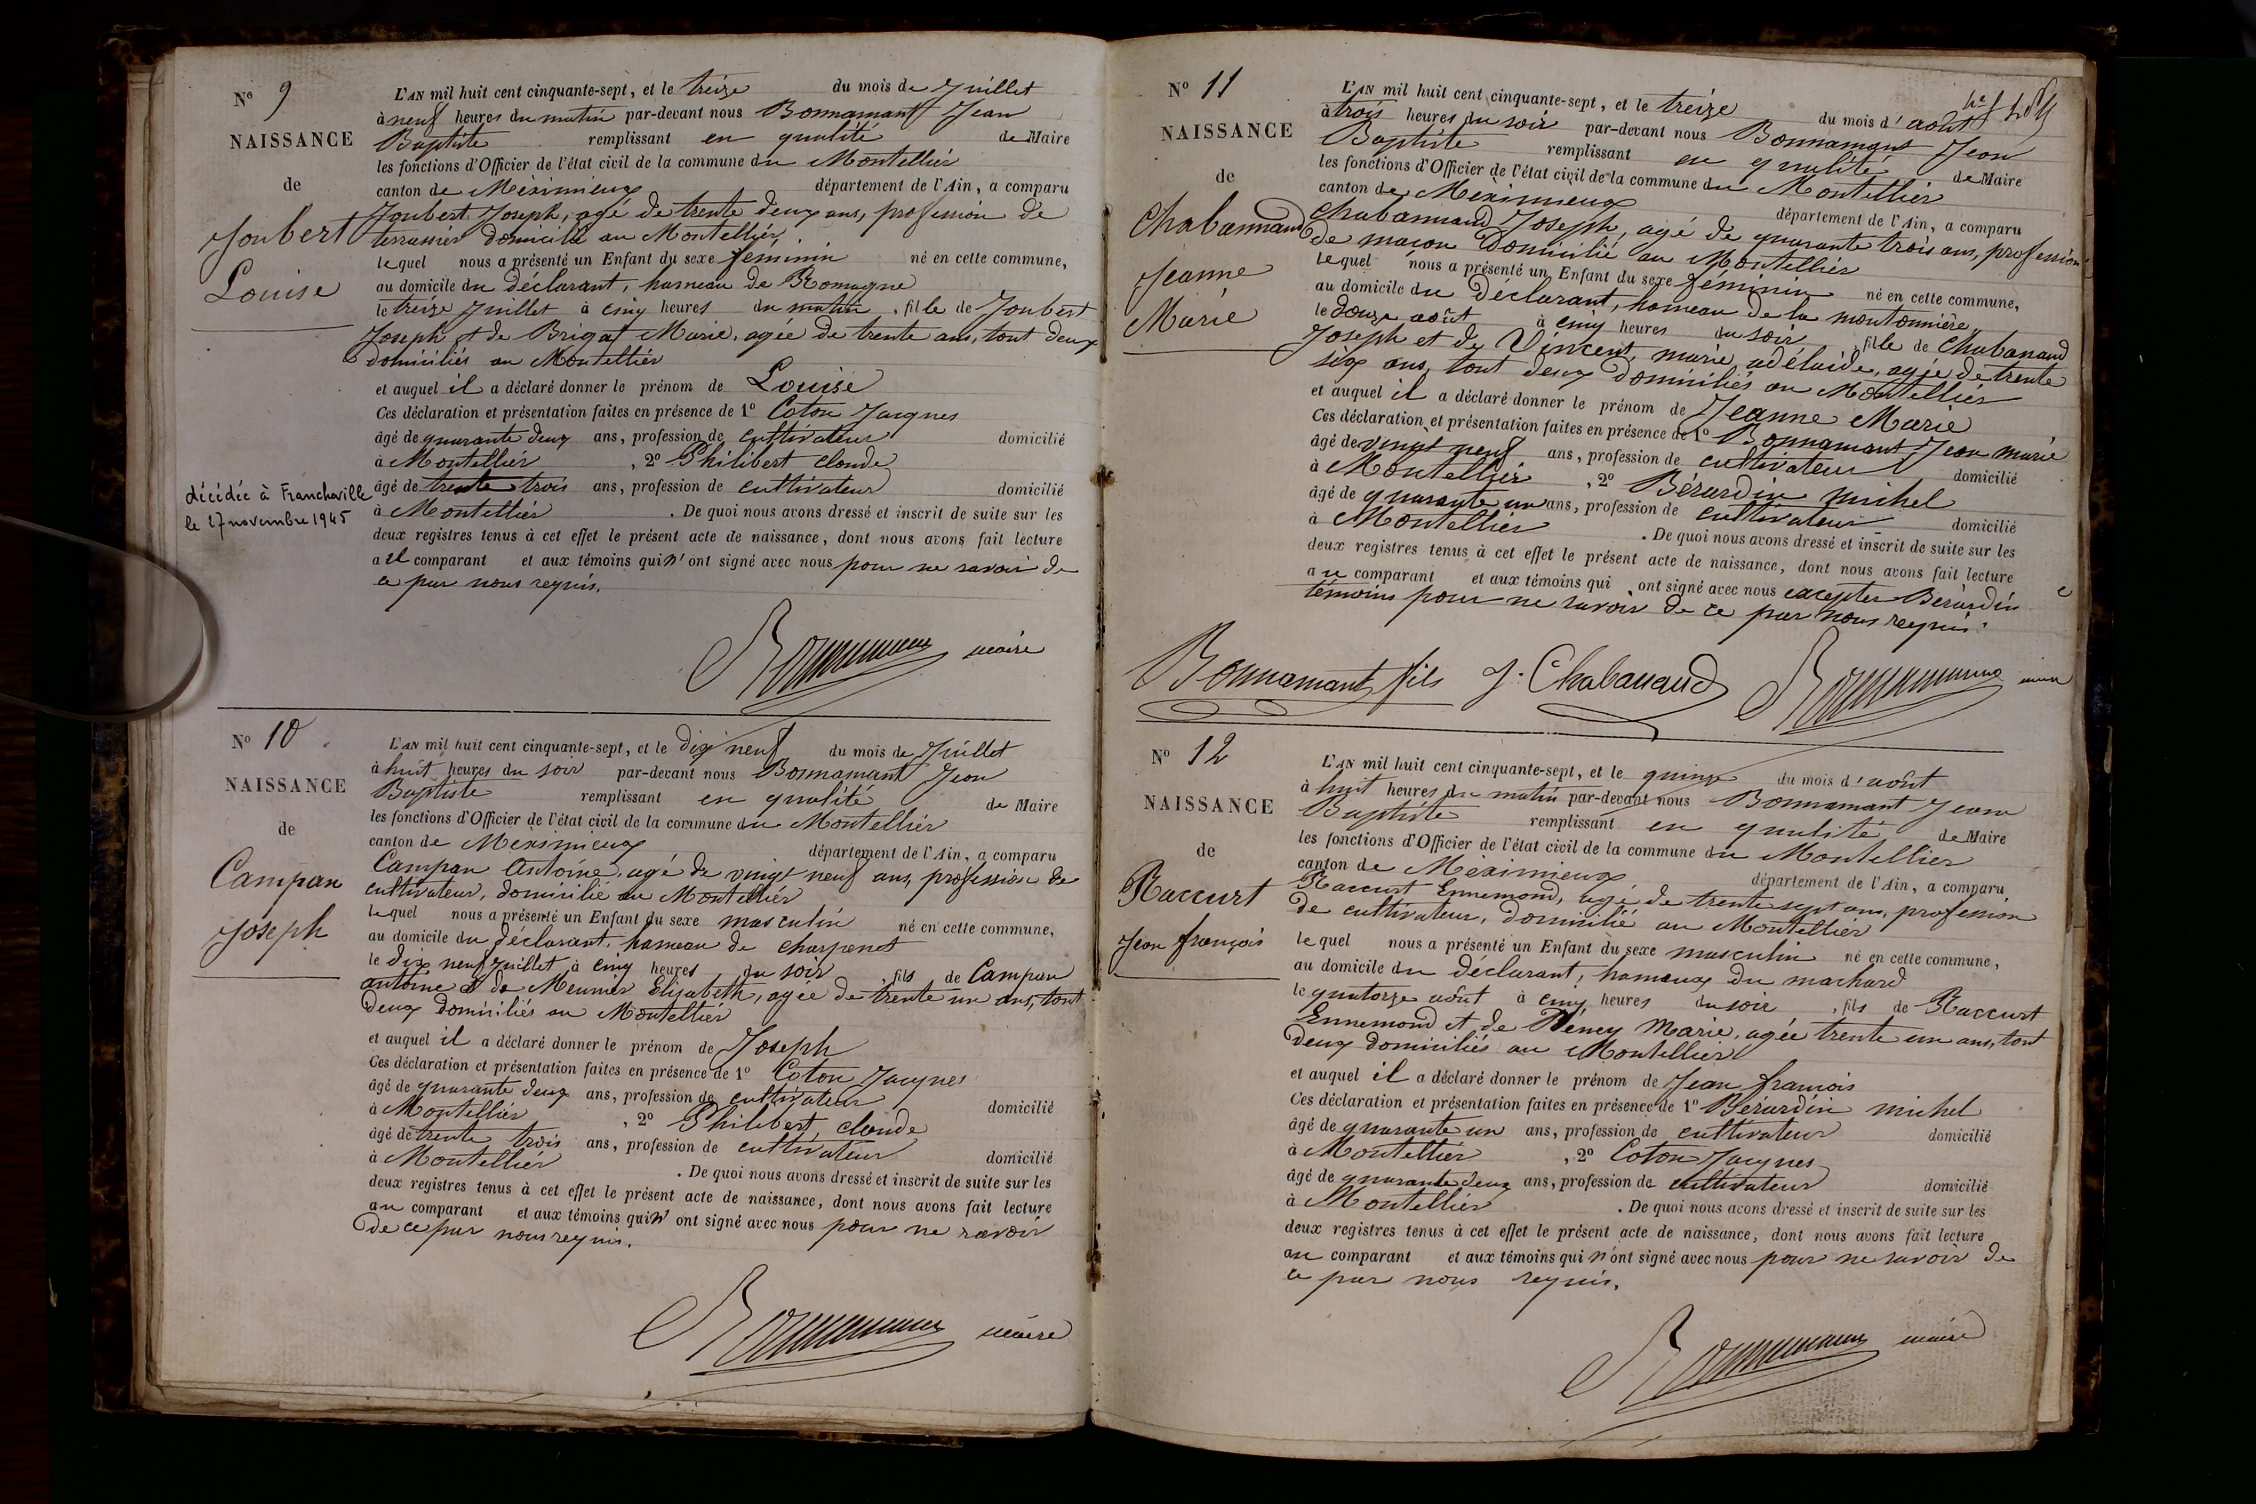 Nº 9
NAISSANCE
de
Joubert
Louise
décédée à Francheville
le 27 novembre 1945
L'AN mil huit cent cinquante-sept, et le treize du mois de Juillet
à neuf heures du matin par-devant nous Bonnamant Jean
Baptiste remplissant en qualité de Maire
les fonctions d'Officier de l'état civil de la commune du Montellier
canton de Meximieux département de l'Ain, a comparu
Joubert Joseph, agé de trente deux ans, profession de
terrassier domicilié au Montellier,
lequel nous a présenté un Enfant du sexe féminin né en cette commune,
au domicile du déclarant, hameau de Romagne
le treize Juillet à cinq heures du matin, fille de Joubert
Joseph et de Brigat Marie, agée de trente ans, tout deux
domiciliés au Montellier
et auquel il a déclaré donner le prénom de Louise
Ces déclaration et présentation faites en présence de 1º Coton Jacques
âgé de quarante deux ans, profession de cultivateur domicilié
à Montellier, 2º Philibert claude
âgé de trente trois ans, profession de cultivateur domicilié
à Montellier. De quoi nous avons dressé et inscrit de suite sur les
deux registres tenus à cet effet le présent acte de naissance, dont nous avons fait lecture
a el comparant et aux témoins qui n'ont signé avec nous pour ne savoir de
ce par nous requis.
Bonnamant maire
Nº 10
NAISSANCE
de
Campan
Joseph
L'AN mil huit cent cinquante-sept, et le dix neuf du mois de Juillet
à huit heures du soir par-devant nous Bonnamant Jean
Baptiste remplissant en qualité de Maire
les fonctions d'Officier de l'état civil de la commune du Montellier
canton de Meximieux département de l'Ain, a comparu
Campan Antoine, agé de vingt neuf ans, profession de
cultivateur, domicilié au Montellier
lequel nous a présenté un Enfant du sexe masculin né en cette commune,
au domicile du déclarant, hameau de charpenet
le dix neuf juillet à cinq heures du soir, fils de Campan
antoine et de Meunier Elisabeth, agée de trente un ans, tout
deux domiciliés au Montellier
et auquel il a déclaré donner le prénom de Joseph
Ces déclaration et présentation faites en présence de 1º Coton Jacques
âgé de quarante deux ans, profession de cultivateur domicilié
à Montellier, 2º Philibert claude
âgé de trente trois ans, profession de cultivateur domicilié
à Montellier. De quoi nous avons dressé et inscrit de suite sur les
deux registres tenus à cet effet le présent acte de naissance, dont nous avons fait lecture
au comparant et aux témoins qui n'ont signé avec nous pour ne savoir
de ce par nous requis.
Bonnamant maire
Nº 11
NAISSANCE
de
Chabannaud
Jeanne
Marie
L'AN mil huit cent cinquante-sept, et le treize du mois d'août
à trois heures du soir par-devant nous Bonnamant Jean
Baptiste remplissant en qualité de Maire
les fonctions d'Officier de l'état civil de la commune du Montellier
canton de Meximieux département de l'Ain, a comparu
Chabannaud Joseph, agé de quarante trois ans, profession
de maçon domicilié au Montellier
lequel nous a présenté un Enfant du sexe féminin né en cette commune,
au domicile du déclarant, hameau de la moutonnière
le douze août à cinq heures du soir, fille de Chabanaud
Joseph et de Vincent marie adélaïde, agée de trente
six ans, tout deux domiciliés au Montellier
et auquel il a déclaré donner le prénom de Jeanne Marie
Ces déclaration et présentation faites en présence de 1º Bonnamant Jean marie
âgé de vingt neuf ans, profession de cultivateur domicilié
à Montellier, 2º Bérardin michel
âgé de quarante un ans, profession de cultivateur domicilié
à Montellier. De quoi nous avons dressé et inscrit de suite sur les
deux registres tenus à cet effet le présent acte de naissance, dont nous avons fait lecture
au comparant et aux témoins qui ont signé avec nous excepter Berardin
témoins pour ne savoir de ce par nous requis.
Bonnamant fils J. Chabanaud Bonnamant maire
Nº 12
NAISSANCE
de
Raccurt
Jean françois
L'AN mil huit cent cinquante-sept, et le quinze du mois d'août
à huit heures du matin par-devant nous Bonnamant Jean
Baptiste remplissant en qualité de Maire
les fonctions d'Officier de l'état civil de la commune du Montellier
canton de Meximieux département de l'Ain, a comparu
Raccurt Ennemond, agé de trente sept ans, profession
de cultivateur, domicilié au Montellier
lequel nous a présenté un Enfant du sexe masculin né en cette commune,
au domicile du déclarant, hameau du machard
le quatorze août à cinq heures du soir, fils de Raccurt
Ennemond et de Péney Marie, agée trente un ans, tout
deux domiciliés au Montellier
et auquel il a déclaré donner le prénom de Jean francois
Ces déclaration et présentation faites en présence de 1º Bérardin michel
âgé de quarante un ans, profession de cultivateur domicilié
à Montellier, 2º Coton Jacques
âgé de quarante deux ans, profession de cultivateur domicilié
à Montellier. De quoi nous avons dressé et inscrit de suite sur les
deux registres tenus à cet effet le présent acte de naissance, dont nous avons fait lecture
au comparant et aux témoins qui n'ont signé avec nous pour ne savoir de
ce par nous requis.
Bonnamant maire